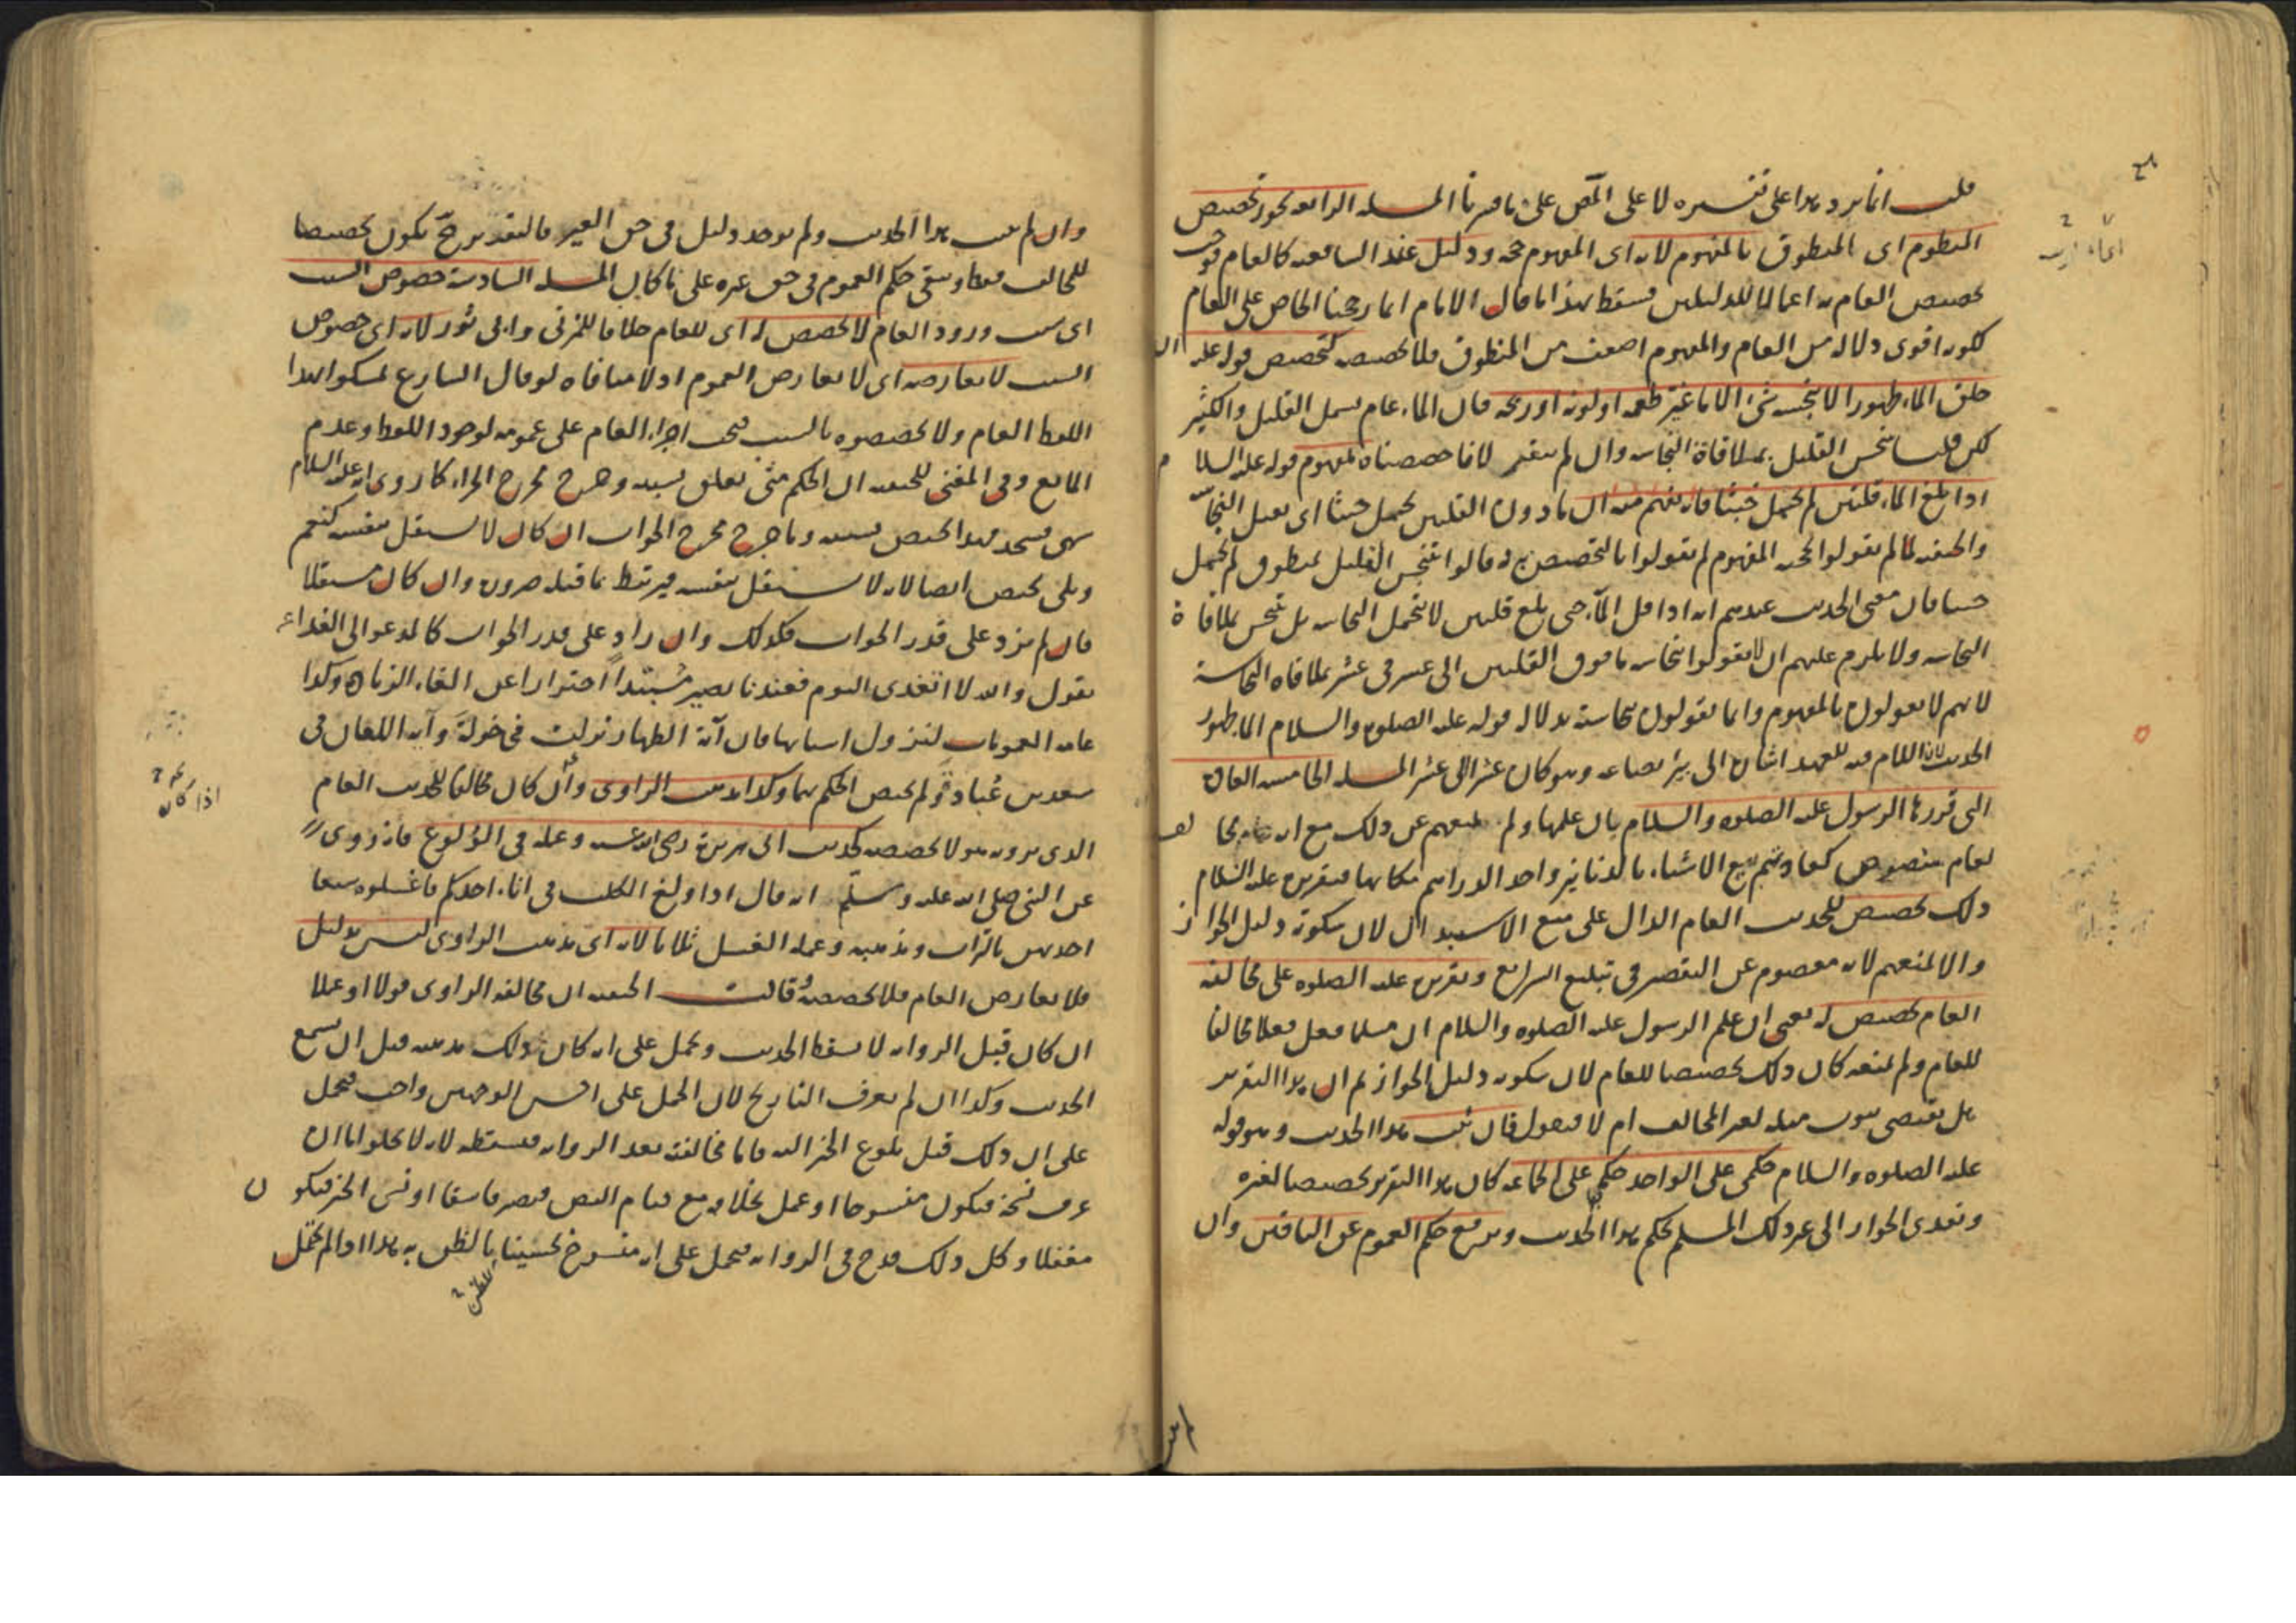 قلت انما يرد هذا على تفسيره لا على المص على ما فسرنا المسله الرابعه يجوز تخصيص
المنطوم اى المنطوق بالمفهوم لانه اى المفهوم حجه ودليل عند الشافعيه كالعام فوجب
تخصيص العام به اعمالا للدليلين فسقط بهذا ما قال الامام انما رجحنا الخاص على العام
لكونه اقوى دلالة من العام والمفهوم اضعف من المنطوق فلا يخصصه كتخصيص قوله عليه ال
خلق الماء طهورا لا ينجسه شئ الا ما غير طعمه او لونه او ريحه فان الماء عام يشمل القليل والكثير
لكن قلنا ينجس القليل بملاقاة النجاسه وان لم يتغير لانا خصصناه بمفهوم قوله عليه السلام
اذا بلغ الماء قلتين لم يحمل خبثا فانه يفهم منه ان ما دون القلتين يحمل خبثا اى يقبل النجاسة
والحنفيه لما لم يقولوا بحجيه المفهوم لم يقولوا بالتخصيص به قالوا ينجس القليل بمنطوق لم يحمل
خبثا فان معنى الحديث عندهم انه اذا قل الماء حتى بلغ قلتين لا يتحمل النجاسه بل ينجس بملاقاة
النجاسه ولا يلزم عليهم ان لا يقولوا بنجاسه ما فوق القلتين الى عشر فى عشر بملاقاه النجاسة
لانهم لا يقولون بالمفهوم وانما يقولون بنجاسته بدلاله قوله عليه الصلوه والسلام الماء طهور
الحديث لان اللام فيه للعهد اشارة الى بئر بضاعه وهو كان عشرا فى عشر المسله الخامسه العادة
التى قررها الرسول عليه الصلوه والسلام بان علمها ولم يمنعهم عن ذلك مع انه مخالف
لعام منصوص كعادتهم بيع الاشياء بالدنانير واخذ الدراهم مكانها فتقريره عليه السلام
ذلك تخصيص للحديث العام الدال على منع الاستبدال لان سكوته دليل الجواز
والا لمنعهم لانه معصوم عن التقصير فى تبليغ الشرائع وتقريره عليه الصلوه على مخالفه
العام تخصيص له يعنى ان علم الرسول عليه الصلوه والسلام ان مسلما فعل فعلا مخالفا
للعام ولم يمنعه كان ذلك تخصيصا للعام لان سكوته دليل الجواز ثم ان هذا التقرير
هل يقتضى ثبوت مثله لغير المخالف ام لا فيقول فان ثبت هذا الحديث وهو قوله
عليه الصلوه والسلام حكمى على الواحد حكمى على الجماعه كان هذا التقرير تخصيصا لغيره
وتعدى الجواز الى غير ذلك المسلم بحكم هذا الحديث ويرتفع حكم العموم عن الباقين وان
وان لم يثبت هذا الحديث ولم يوجد دليل فى حق الغير فالتقدير ح يكون تخصيصا
للمخالف فقط ويبقى حكم العموم فى حق غيره على ما كان المسله السادسة خصوص السبب
اى سبب ورود العام لا يخصص له اى للعام خلافا للمزنى وابى ثور لانه اى خصوص
السبب لا يعارضه اى لا يعارض العموم اذ لا منافاه لو قال الشارع تمسكوا بهذا
اللفظ العام ولا تخصصوه بالسبب فيجب اجراء العام على عمومه لوجود اللفظ وعدم
المانع وفى المغنى للحنفيه ان الحكم متى تعلق بسببه وخرج مخرج الجزاء كما روى انه عليه السلام
سهى فسجد فهذا يختص بسببه وما خرج مخرج الجواب ان كان لا يستقل بنفسه كنعم
وبلى يختص ايضا لانه لا يستقل بنفسه فيرتبط بما قبله ضرورة وان كان مستقلا
فان لم يزد على قدر الجواب فكذلك وان زاد على قدر الجواب كالمدعو الى الغداء
يقول والله لا اتغدى اليوم فعندنا يصير مبتدأ احترازا عن الغاء الزيادة وكذا
عامه العمومات لنزول اسبابها فان آية الظهار نزلت فى خولة وآيه اللعان فى
سعد بن عبادة ولم يختص الحكم بهما وكذا مذهب الراوى وان كان مخالفا للحديث العام
الذى يرويه هو لا يخصصه كحديث ابى هريرة رضى الله عنه وعمله فى الولوغ فانه روى
عن النبى صلى الله عليه وسلم انه قال اذا ولغ الكلب فى اناء احدكم فاغسلوه سبعا
احديهن بالتراب ومذهبه وعمله الغسل ثلاثا لانه اى مذهب الراوى ليس بدليل
فلا يعارض العام فلا يخصصه وقالت الحنفيه ان مخالفه الراوى قولا او عملا
ان كان قبل الروايه لا يسقط الحديث ويحمل على انه كان ذلك مذهبه قبل ان يسمع
الحديث وكذا ان لم يعرف التاريخ لان الحمل على احسن الوجهين واجب فيحمل
على ان ذلك قبل بلوغ الخبر اليه فاما مخالفته بعد الروايه فيسقطه لانه لا يخلو اما ان
عرف نسخه فيكون منسوخا او عمل بخلافه مع قيام النص فيصير فاسقا او نسى الخبر فيكون
مغفلا وكل ذلك قدح فى الروايه فيحمل على انه منسوخ تحسينا بالظن به هذا اذا لم يحتمل
للظن